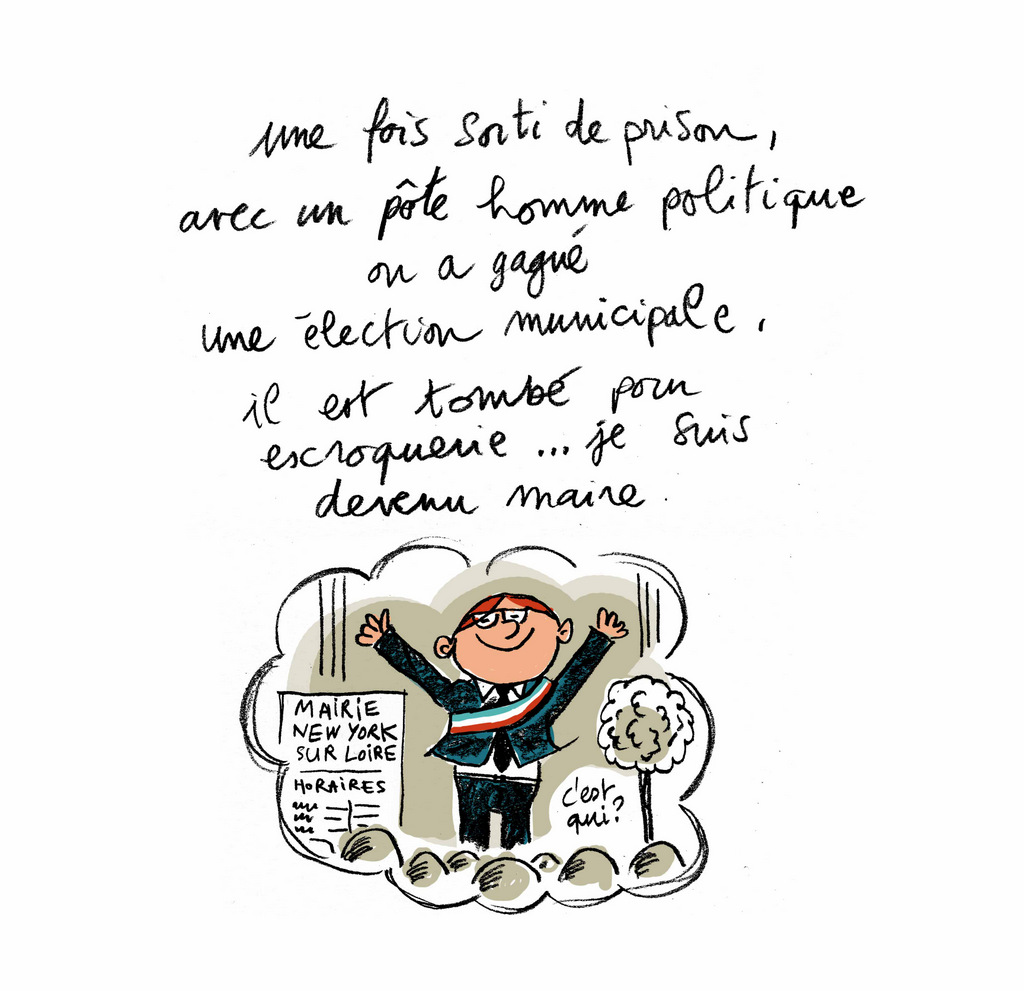 une fois sorti de prison,
avec un pôte homme politique
on a gagné
une élection municipale.
il est tombé pour
escroquerie... je suis
devenu maire.
MAIRIE
NEW YORK
SUR LOIRE
HORAIRES
c'est
qui?